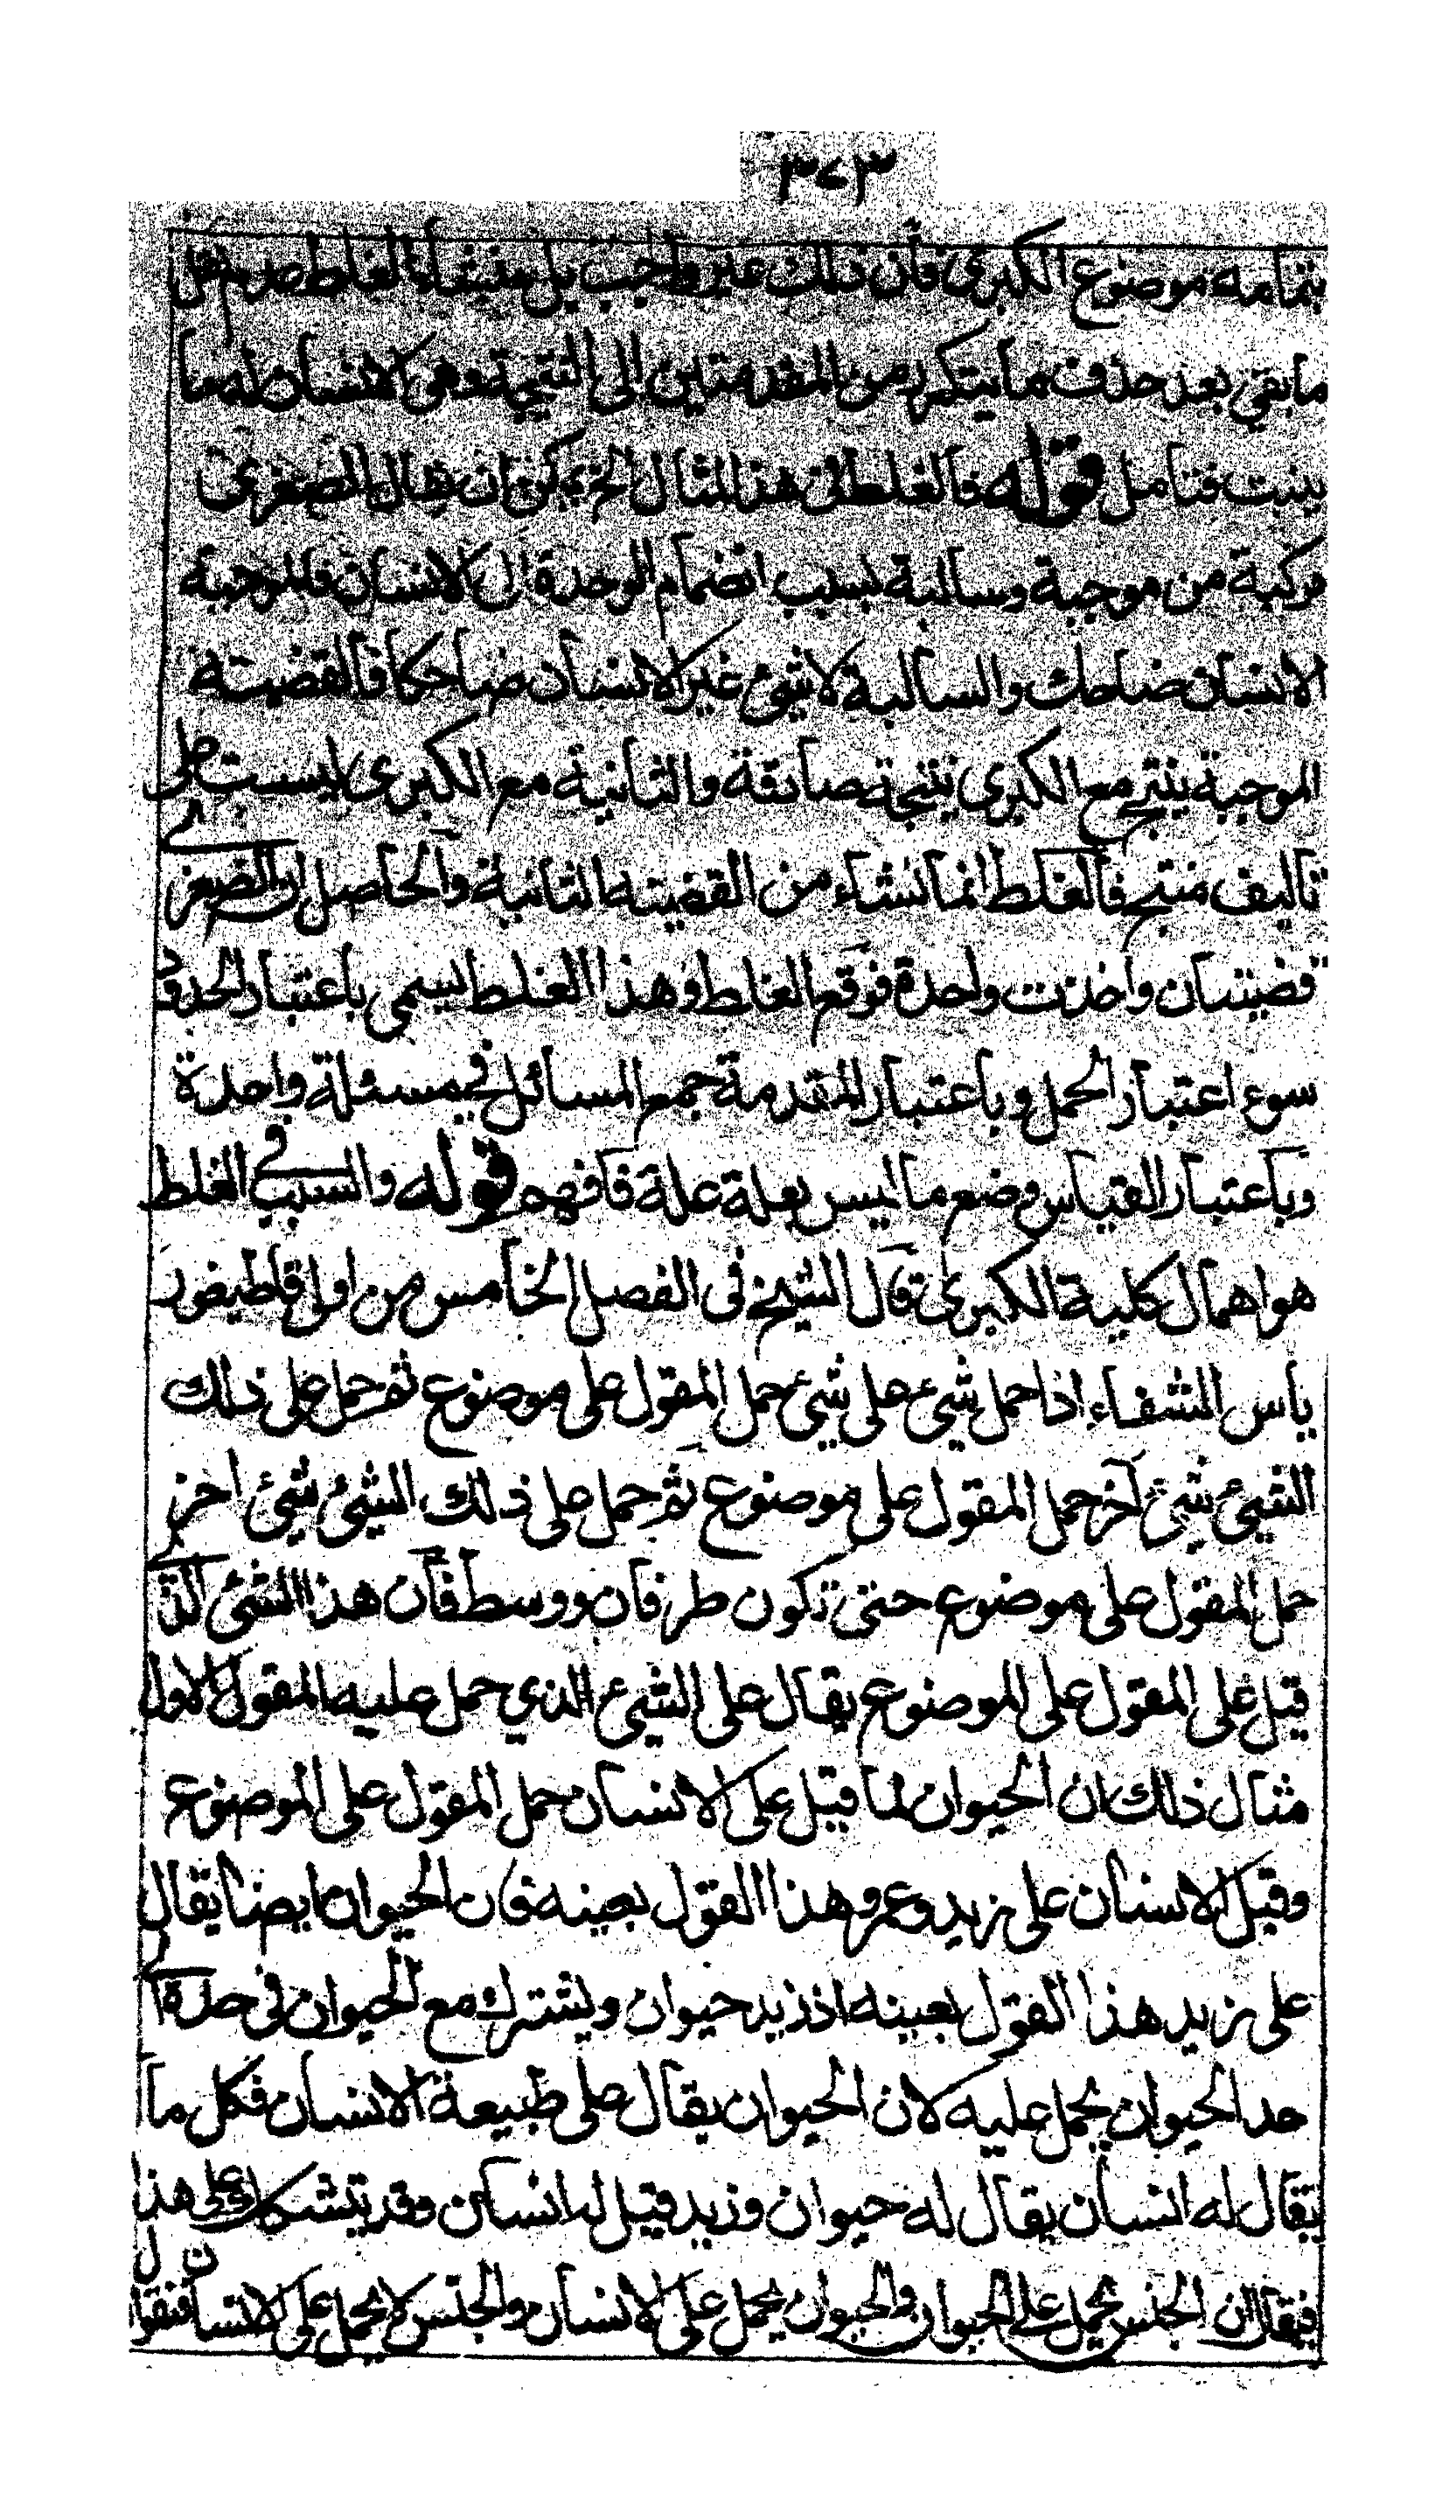 ٣٧٣
بتمامه موضوع الكبرى فان ذلك غير واجب بل منشاء الغلط عدم نقل
ما بقي بعد حذف ما يتكرر من المقدمتين الى النتيجة وهى الانسان له ما
ينبت فتامل قوله فالغلط فى هذا المثال الخ يمكن ان يقال الصغرى
مركبة من موجبة وسالبة بسبب انضمام الوحدة الى الانسان فالموجبة
الانسان ضاحك والسالبة لا شئ غير الانسان ضاحكا فالقضية
الموجبة ينتج مع الكبرى نتيجة صادقة والثانية مع الكبرى ليست على
تاليف منتج فالغلط انما نشاء من القضية الثانية والحاصل ان الصغرى
قضيتان واخذت واحدة فوقع الغلط وهذا الغلط يسمى باعتبار الحدود
سوء اعتبار الحمل وباعتبار المقدمة جمع المسائل في مسئلة واحدة
وباعتبار القياس وضع ما ليس بعلة علة فافهم قوله والسبب فى الغلط
هو اهمال كلية الكبرى قال الشيخ فى الفصل الخامس من اولى قاطيغور
ياس الشفاء اذا حمل شئ على شئ حمل المقول على موضوع ثم حمل على ذلك
الشيئ شيئ آخر حمل المقول على موضوع ثم حمل على ذلك الشيئ شيئ اخر
حمل المقول على موضوع حتى تكون طرفان ووسط فان هذا الشئ الذى
قيل على المقول على الموضوع يقال على الشيئ الذي حمل عليه المقول الاول
مثال ذلك ان الحيوان لما قيل على الانسان حمل المقول على الموضوع
وقيل الانسان على زيد وعمرو هذا القول بعينه فان الحيوان ايضا يقال
على زيد هذا القول بعينه اذ زيد حيوان ويشترك مع الحيوان فى حده اى
حد الحيوان يحمل عليه لان الحيوان يقال على طبيعة الانسان فكل ما
يقال له انسان يقال له حيوان وزيد قيل له انسان وقد يتشكك على هذا
فيقال ان الجنس يحمل على الحيوان والحيوان يحمل على الانسان والجنس لا يحمل على الانسان فنقول